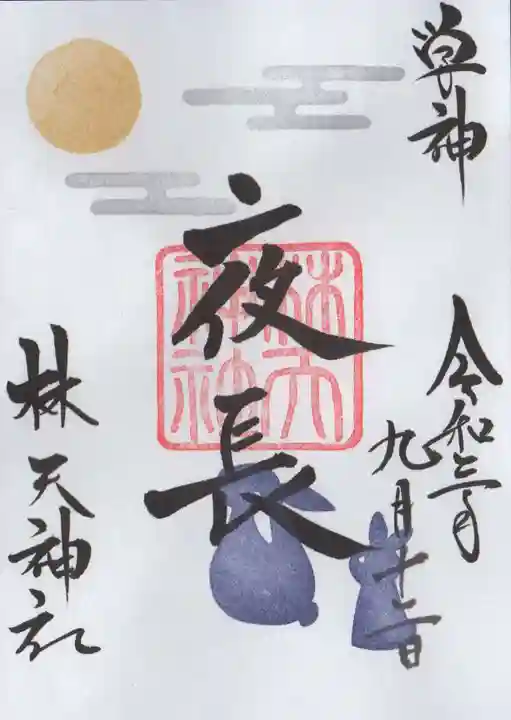 学神
令和三年
九月十二日
夜長
林天
神社
林天神社